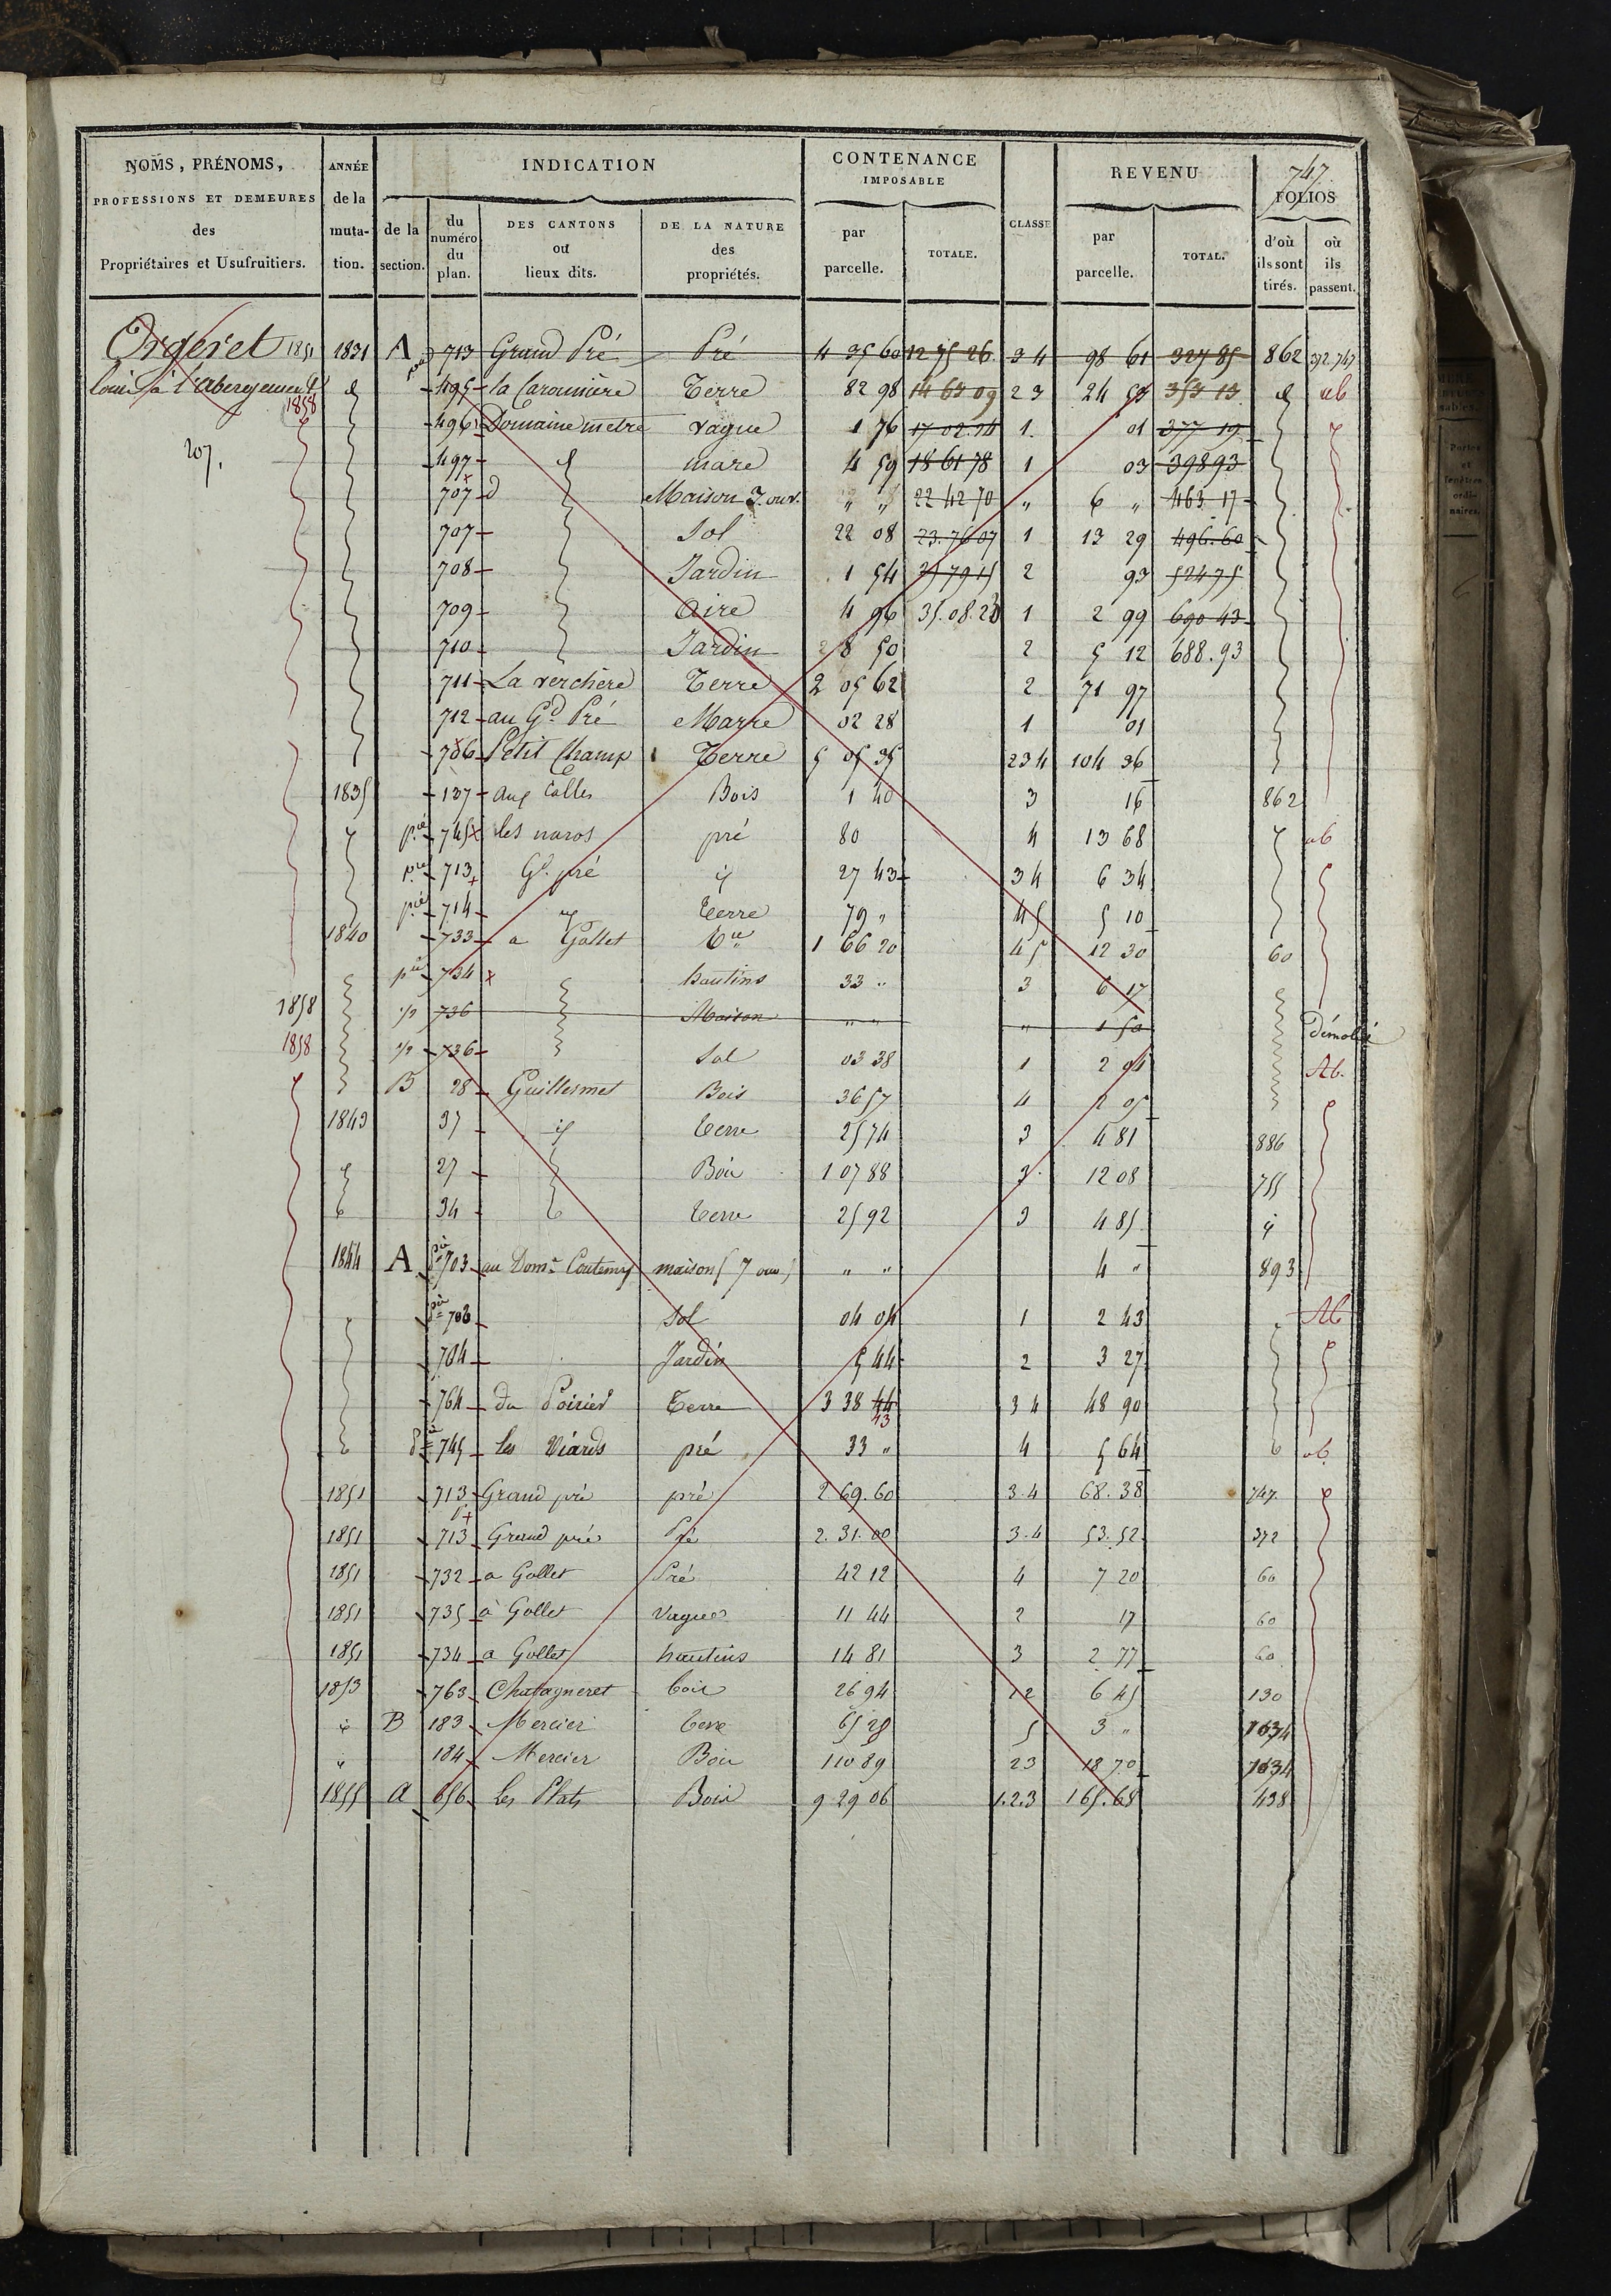 NOMS, PRÉNOMS, PROFESSIONS ET DEMEURES des Propriétaires et Usufruitiers. ANNÉE de la mutation. INDICATION de la section. du numéro du plan. DES CANTONS ou lieux dits. DE LA NATURE des propriétés. CONTENANCE IMPOSABLE par parcelle. TOTALE. CLASSE REVENU par parcelle. TOTAL. 747 FOLIOS d'où ils sont tirés. où ils passent.
Orgeret 1851 1831 A 713 Grand Pré Pré 4 35 60 12 75 26 3 4 98 61 327 85 862 372.747
Louis à l'abergement 495 la Caronnière Terre 82 98 14 63 09 2 3 24 57 353 13 ab
1858 496 Domaine metre vague 1 76 17 02 24 1 01 377 19
207. 497 mare 4 59 18 61 78 1 03 398 93
707 Maison 7 ouv. " " 22 42 70 " 6 " 463 17
707 Sol 22 08 23.76 07 1 13 29 496.60
708 Jardin 1 54 25 79 15 2 93 524 75
709 aire 4 96 35.08.28 1 2 99 690 43
710 Jardin 8 50 2 5 12 688.93
711 La verchère Terre 2 05 62 2 71 97
712 au Gd Pré Marre 02 28 1 01
786 Petit Champ Terre 5 05 35 2 3 4 104 36
1835 137 aux Calles Bois 1 40 3 16 862
pie 745 les naros pré 80 4 13 68 ab
pie 713 Gd pré 27 43 3 4 6 34
pie 714 terre 79 " 4 5 5 10
1840 733 a Gollet 1 66 20 4 5 12 30 60
pie 734 hautins 33 " 3 6 17
1858 1/2 736 Maison " " " 1 50 Démolie
1858 1/2 736 Sol 03 38 1 2 04 Ab.
B 28 Guillermet Bois 36 57 4 2 05
1843 37 terre 25 74 3 4 81 886
27 Bois 1 07 88 3 12 08 755
34 terre 25 92 3 4 85
1844 A pie 703 au Domne Contemy maison (7 ouv.) " " 4 " 893
pie 703 Sol 04 04 1 2 43 Ab
704 Jardin 5 44 2 3 27
764 du Poirier terre 3 38 44 3 4 48 90
43
745 les Viards pré 33 " 4 5 64 ab
1851 713 Grand pré pré 2.69.60 3.4 68.38 747
1851 713 Grand pré Pré 2.31.00 3.4 53.52 372
1851 732 a Gollet Pré 42 12 4 7 20 60
1851 735 à Gollet Vagues 11 44 2 17 60
1851 734 a Gollet hautins 14 81 3 2 77 60
1853 763 Chatagneret bois 26 94 1 2 6 45 130
B 183 Mercier terre 65 28 5 3 " 1034
" 184 Mercier Bois 1 10 89 2 3 18 70 1034
1855 a 656 Les Plats Bois 9 29 06 1.2.3 165.68 438